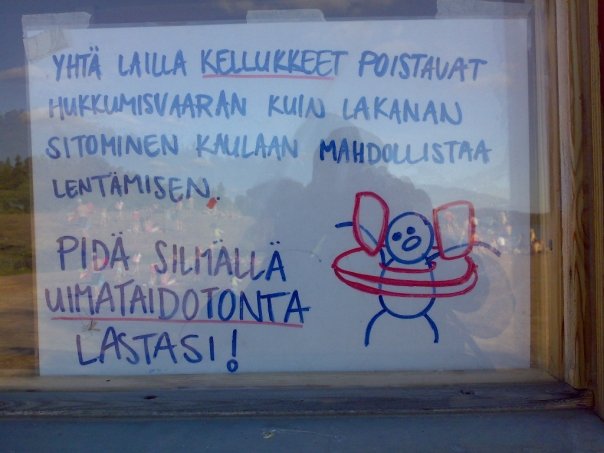 YHTÄ LAILLA KELLUKKEET POISTAVAT
HUKKUMISVAARAN KUIN LAKANAN
SITOMINEN KAULAAN MAHDOLLISTAA
LENTÄMISEN.
PIDÄ SILMÄLLÄ
UIMATAIDOTONTA
LASTASI!